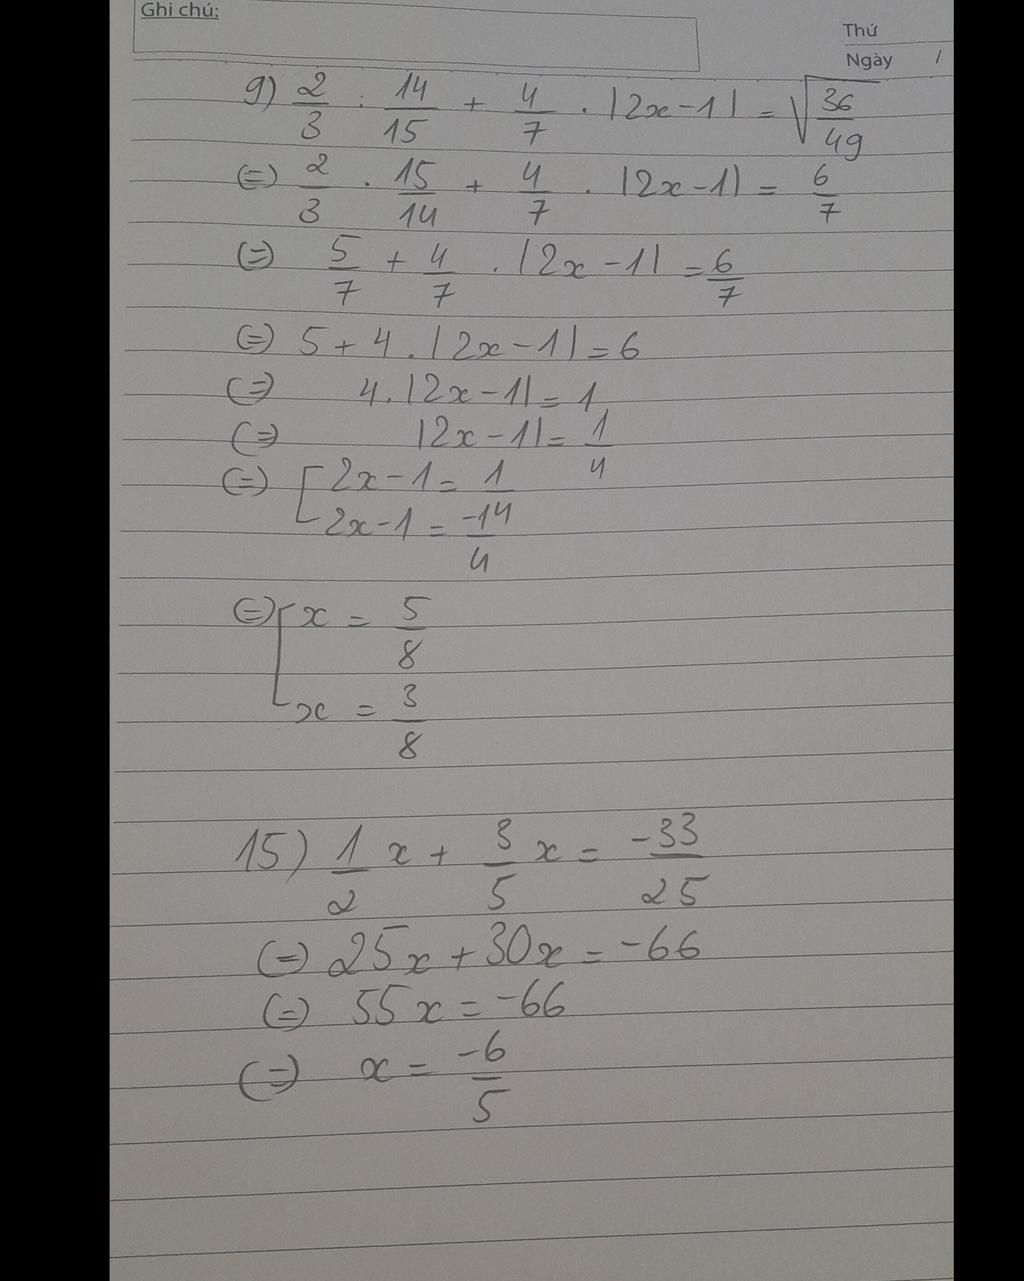 Ghi chú:
Thứ
Ngày /
9) 2/3 : 14/15 + 4/7 . |2x-1| = √(36/49)
(=) 2/3 . 15/14 + 4/7 . |2x-1| = 6/7
(=) 5/7 + 4/7 . |2x-1| = 6/7
(=) 5+4.|2x-1|=6
(=) 4.|2x-1|=1
(=) |2x-1|= 1/4
(=) [ 2x-1= 1
2x-1 = -14/4
(=) [ x = 5/8
x = 3/8
15) 1/2 x + 3/5 x = -33/25
(=) 25x+30x=-66
(=) 55x=-66
(=) x = -6/5